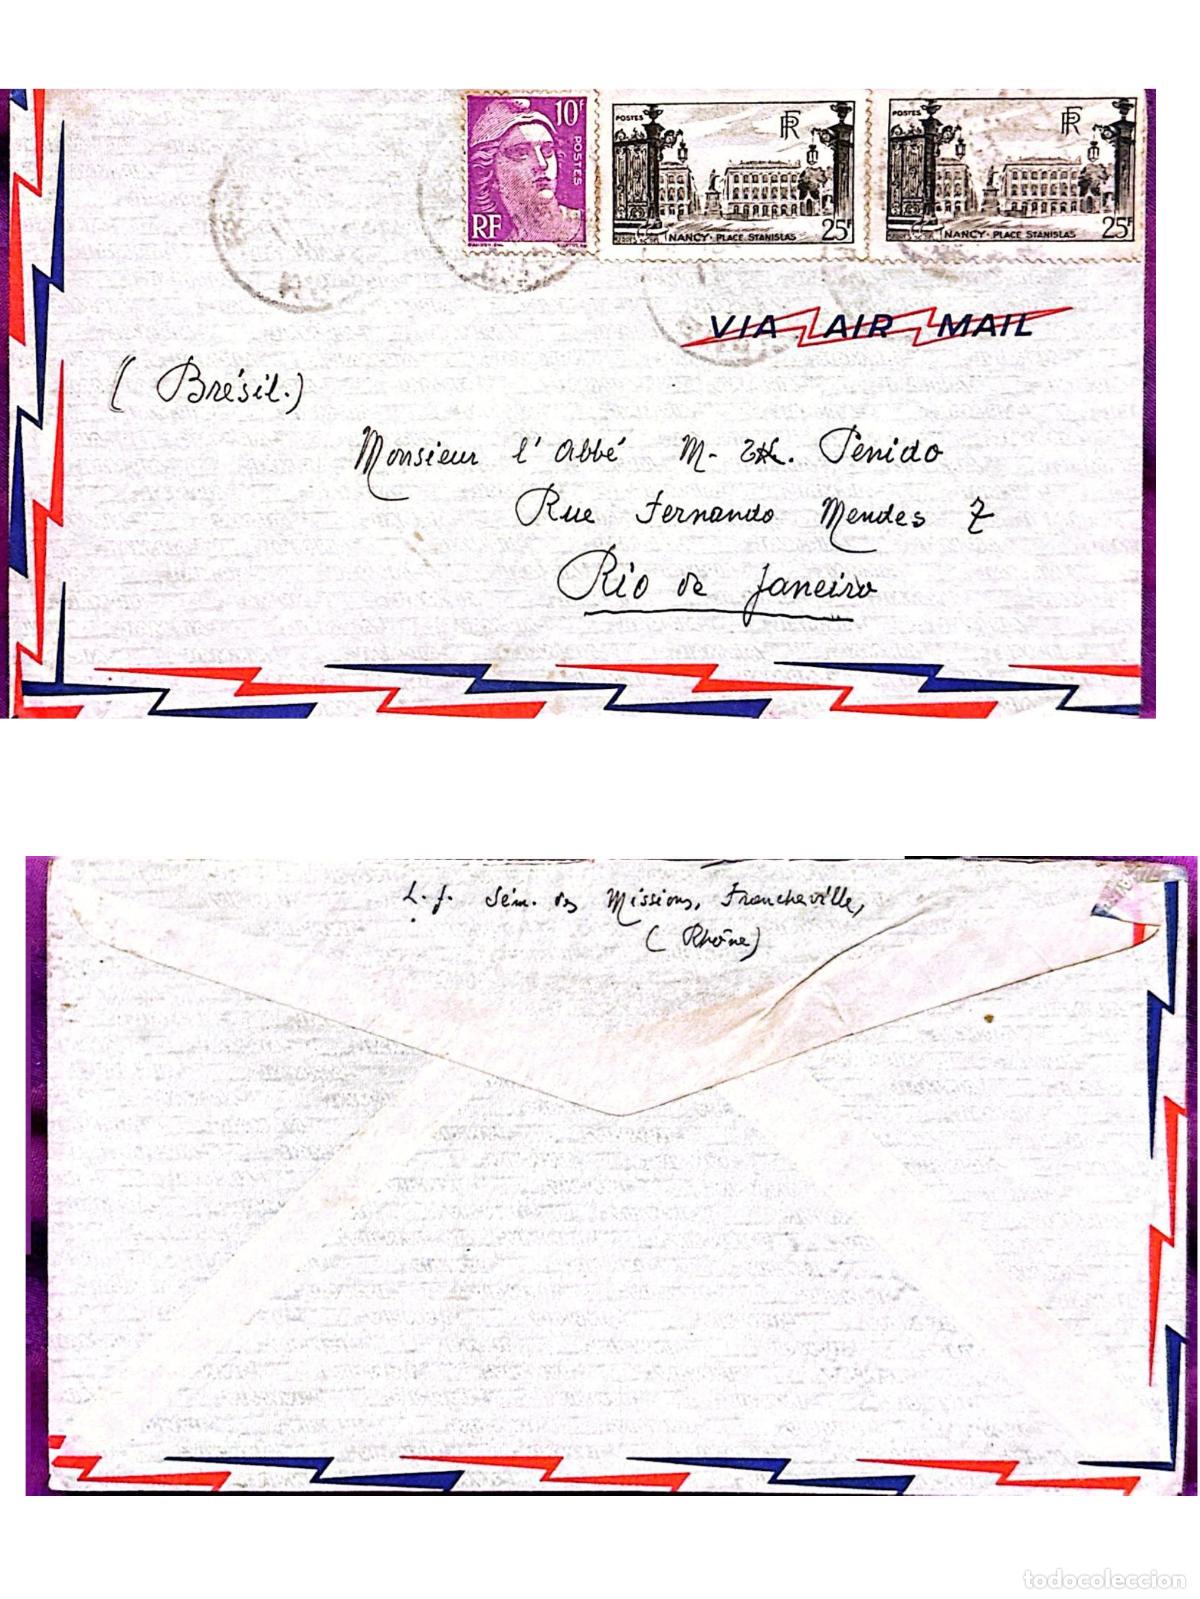 10F
POSTES
RF
POSTES
RF
NANCY - PLACE STANISLAS
25F
POSTES
RF
NANCY - PLACE STANISLAS
25F
VIA AIR MAIL
( Brésil.)
Monsieur l'Abbé M. Penido
Rue Fernando Mendes 7
Rio de Janeiro
L. J. Sém. des Missions, Francheville,
( Rhône)
todocoleccion